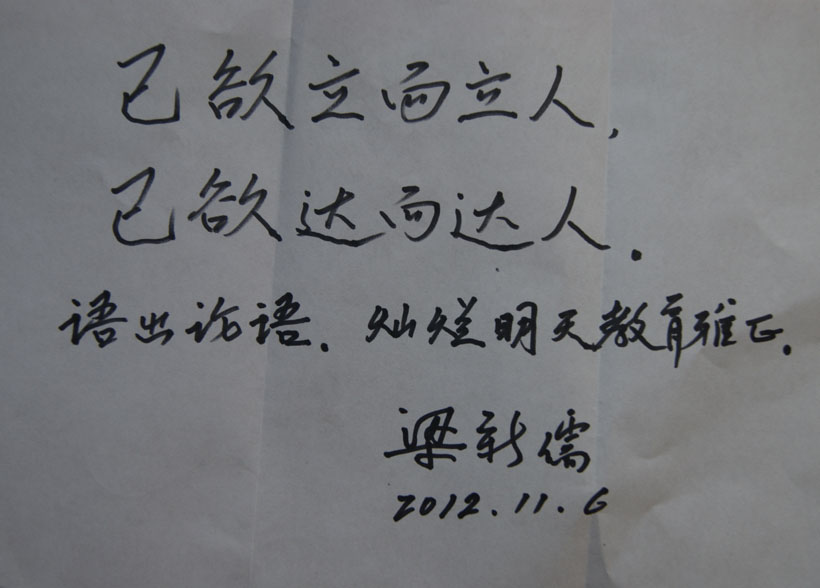 己欲立而立人,
己欲达而达人.
语出论语.灿烂明天教育雅正.
梁新儒
2012.11.6